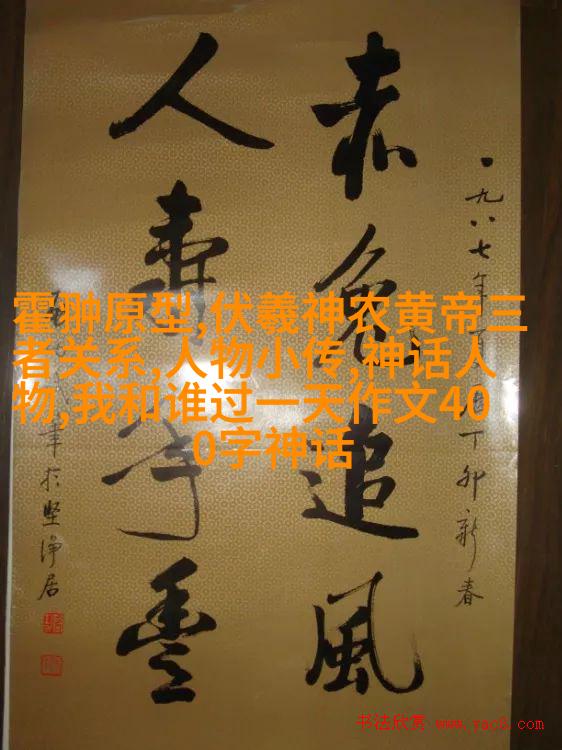 霍翀原型,伏羲神农黄帝三
者关系,人物小传,神话人
物,我和谁过一天作文40
0字神话
一九八七年
丁卯新春
赤兔追風
人壽年豐
於堅淨居
书法欣赏 www.yac8.com